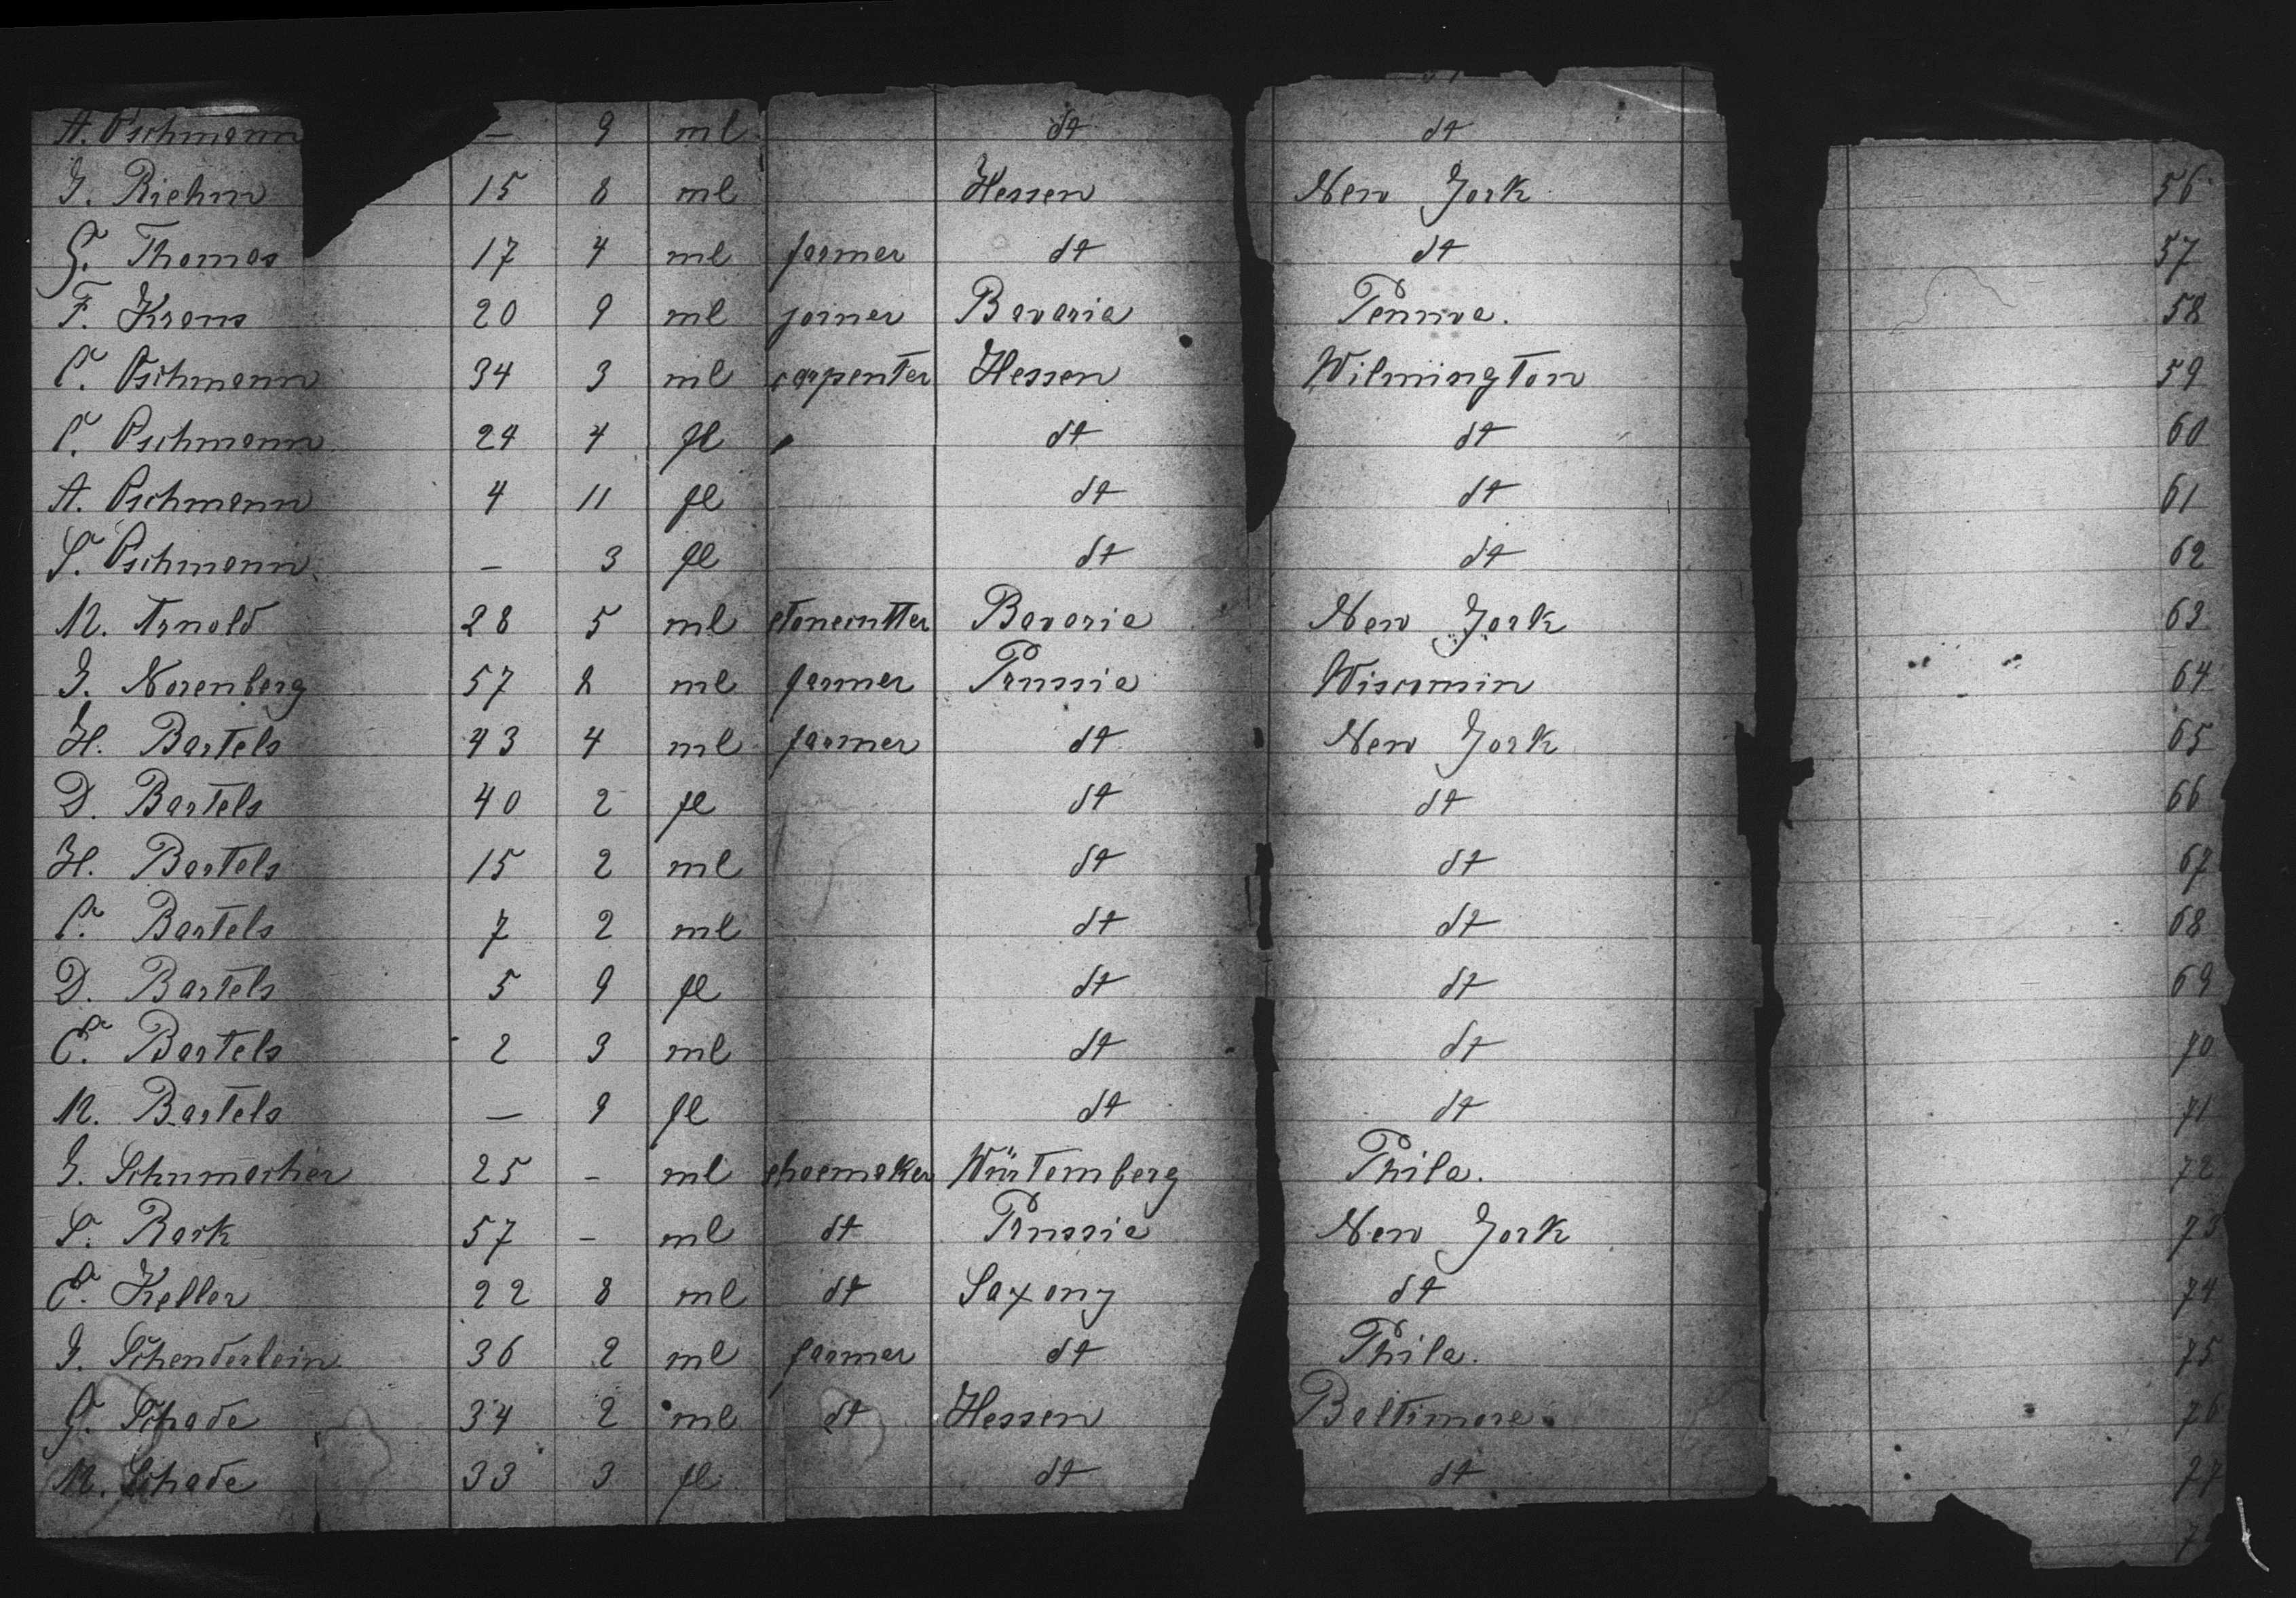 A. Oschmann — 9 ml dt dt
J. Riehm 15 8 ml Hessen New York 56
G. Thomas 17 4 ml farmer dt dt 57
F. Krans 20 9 ml joiner Bavaria Pennva. 58
C. Oschmann 34 3 ml carpenter Hessen Wilmington 59
C. Oschmann 24 4 fl dt dt 60
A. Oschmann 4 11 fl dt dt 61
S. Oschmann — 3 fl dt dt 62
M. Arnold 28 5 ml stonecutter Bavaria New York 63
J. Norenberg 57 2 ml farmer Prussia Wisconsin 64
H. Bartels 43 4 ml farmer dt New York 65
D. Bartels 40 2 fl dt dt 66
H. Bartels 15 2 ml dt dt 67
C. Bartels 7 2 ml dt dt 68
D. Bartels 5 9 fl dt dt 69
E. Bartels 2 3 ml dt dt 70
M. Bartels — 9 fl dt dt 71
J. Schumacher 25 - ml shoemaker Würtemberg Phila. 72
S. Bark 57 - ml dt Prussia New York 73
E. Keller 22 8 ml dt Saxony dt 74
J. Schenderlein 36 2 ml farmer dt Phila. 75
G. Schade 34 2 ml dt Hessen Baltimore 76
M. Schade 33 3 fl dt dt 77